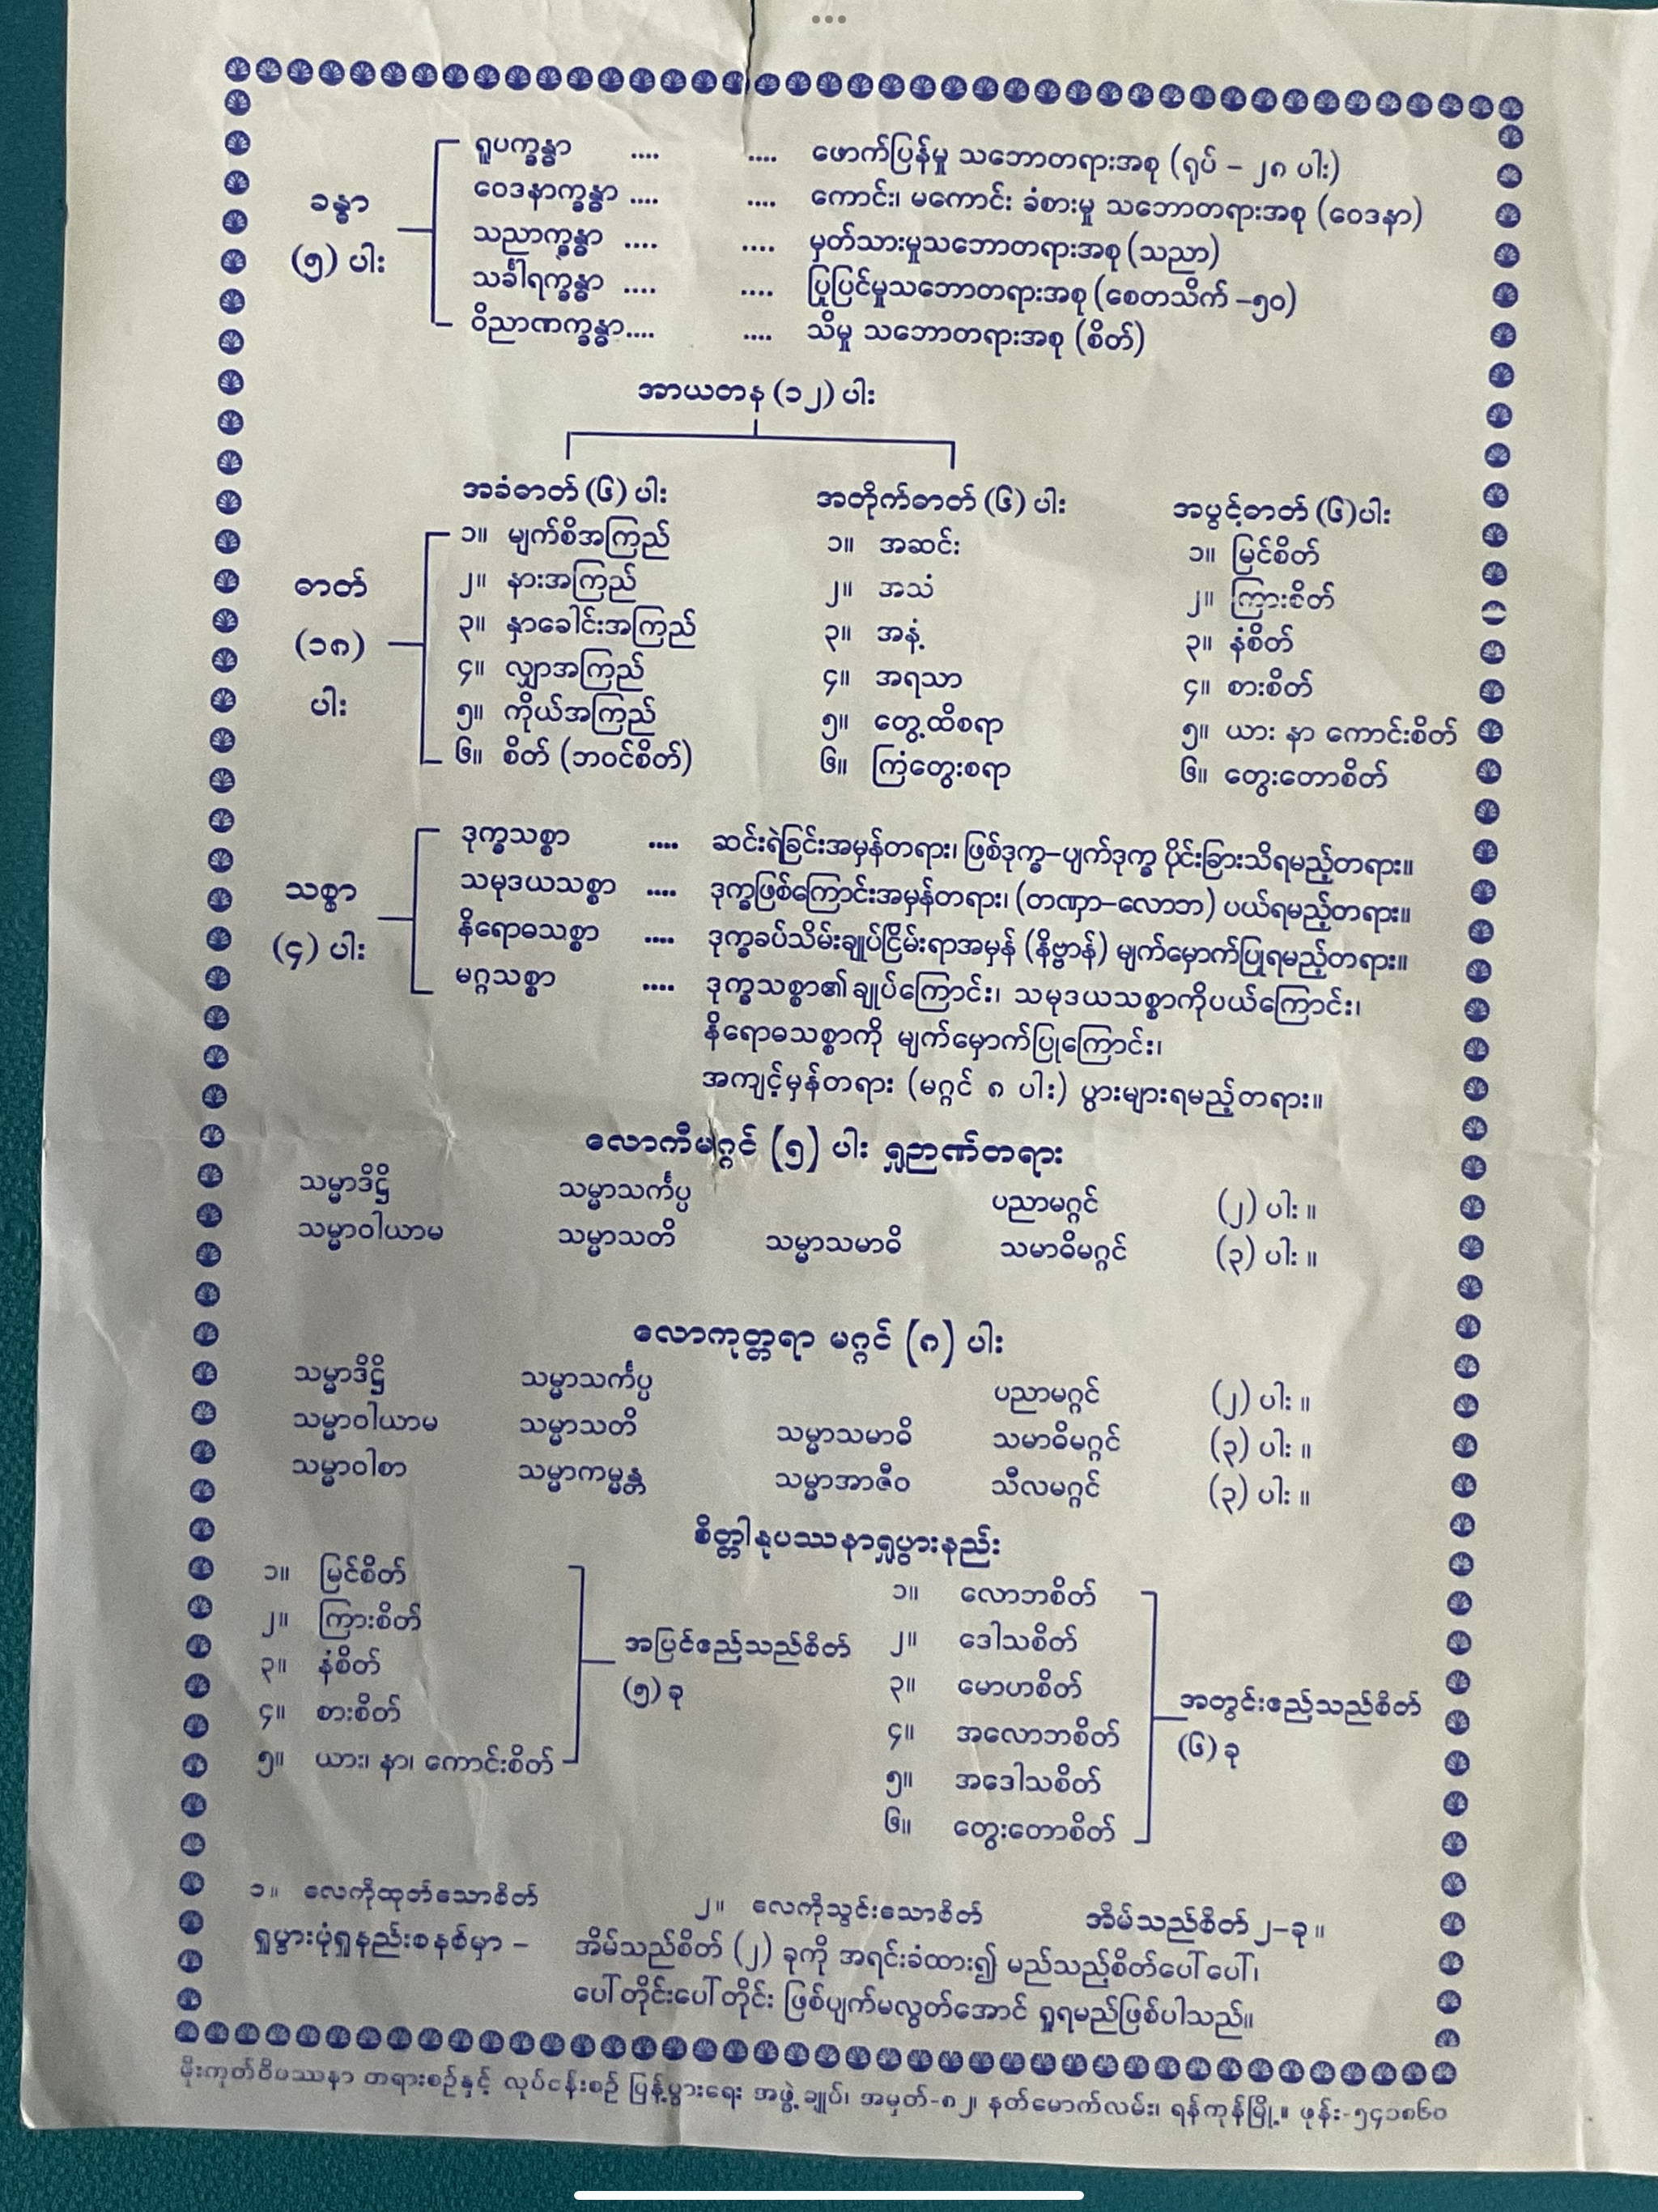 ခန္ဓာ
(၅) ပါး
ရူပက္ခန္ဓာ .... .... ဖောက်ပြန်မှု သဘောတရားအစု (ရုပ် – ၂၈ ပါး)
ဝေဒနာက္ခန္ဓာ .... .... ကောင်း၊ မကောင်း ခံစားမှု သဘောတရားအစု (ဝေဒနာ)
သညာက္ခန္ဓာ .... .... မှတ်သားမှုသဘောတရားအစု (သညာ)
သင်္ခါရက္ခန္ဓာ .... .... ပြုပြင်မှုသဘောတရားအစု (စေတသိက် –၅၀)
ဝိညာဏက္ခန္ဓာ.... .... သိမှု သဘောတရားအစု (စိတ်)
အာယတန (၁၂) ပါး
အခံဓာတ် (၆) ပါး အတိုက်ဓာတ် (၆) ပါး အပွင့်ဓာတ် (၆)ပါး
ဓာတ်
(၁၈)
ပါး
၁။ မျက်စိအကြည် ၁။ အဆင်း ၁။ မြင်စိတ်
၂။ နားအကြည် ၂။ အသံ ၂။ ကြားစိတ်
၃။ နှာခေါင်းအကြည် ၃။ အနံ့ ၃။ နံစိတ်
၄။ လျှာအကြည် ၄။ အရသာ ၄။ စားစိတ်
၅။ ကိုယ်အကြည် ၅။ တွေ့ထိစရာ ၅။ ယား နာ ကောင်းစိတ်
၆။ စိတ် (ဘဝင်စိတ်) ၆။ ကြံတွေးစရာ ၆။ တွေးတောစိတ်
သစ္စာ
(၄) ပါး
ဒုက္ခသစ္စာ .... ဆင်းရဲခြင်းအမှန်တရား၊ ဖြစ်ဒုက္ခ–ပျက်ဒုက္ခ ပိုင်းခြားသိရမည့်တရား။
သမုဒယသစ္စာ .... ဒုက္ခဖြစ်ကြောင်းအမှန်တရား၊ (တဏှာ–လောဘ) ပယ်ရမည့်တရား။
နိရောဓသစ္စာ .... ဒုက္ခခပ်သိမ်းချုပ်ငြိမ်းရာအမှန် (နိဗ္ဗာန်) မျက်မှောက်ပြုရမည့်တရား။
မဂ္ဂသစ္စာ .... ဒုက္ခသစ္စာ၏ချုပ်ကြောင်း၊ သမုဒယသစ္စာကိုပယ်ကြောင်း၊
နိရောဓသစ္စာကို မျက်မှောက်ပြုကြောင်း၊
အကျင့်မှန်တရား (မဂ္ဂင် ၈ ပါး) ပွားများရမည့်တရား။
လောကီမဂ္ဂင် (၅) ပါး ရှုဉာဏ်တရား
သမ္မာဒိဋ္ဌိ သမ္မာသင်္ကပ္ပ ပညာမဂ္ဂင် (၂) ပါး ။
သမ္မာဝါယာမ သမ္မာသတိ သမ္မာသမာဓိ သမာဓိမဂ္ဂင် (၃) ပါး ။
လောကုတ္တရာ မဂ္ဂင် (၈) ပါး
သမ္မာဒိဋ္ဌိ သမ္မာသင်္ကပ္ပ ပညာမဂ္ဂင် (၂) ပါး ။
သမ္မာဝါယာမ သမ္မာသတိ သမ္မာသမာဓိ သမာဓိမဂ္ဂင် (၃) ပါး ။
သမ္မာဝါစာ သမ္မာကမ္မန္တ သမ္မာအာဇီဝ သီလမဂ္ဂင် (၃) ပါး ။
စိတ္တါနုပဿနာရှုပွားနည်း
၁။ မြင်စိတ်
၂။ ကြားစိတ်
၃။ နံစိတ်
၄။ စားစိတ်
၅။ ယား၊ နာ၊ ကောင်းစိတ်
အပြင်ဧည့်သည်စိတ်
(၅) ခု
၁။ လောဘစိတ်
၂။ ဒေါသစိတ်
၃။ မောဟစိတ်
၄။ အလောဘစိတ်
၅။ အဒေါသစိတ်
၆။ တွေးတောစိတ်
အတွင်းဧည့်သည်စိတ်
(၆) ခု
၁။ လေကိုထုတ်သောစိတ် ၂။ လေကိုသွင်းသောစိတ် အိမ်သည်စိတ် ၂–ခု ။
ရှုပွားပုံရှုနည်းစနစ်မှာ – အိမ်သည်စိတ် (၂) ခုကို အရင်းခံထား၍ မည်သည့်စိတ်ပေါ်ပေါ်၊
ပေါ်တိုင်းပေါ်တိုင်း ဖြစ်ပျက်မလွတ်အောင် ရှုရမည်ဖြစ်ပါသည်။
မိုးကုတ်ဝိပဿနာ တရားစဉ်နှင့် လုပ်ငန်းစဉ် ပြန့်ပွားရေး အဖွဲ့ချုပ်၊ အမှတ်-၈၂၊ နတ်မောက်လမ်း၊ ရန်ကုန်မြို့။ ဖုန်း-၅၄၁၈၆၀